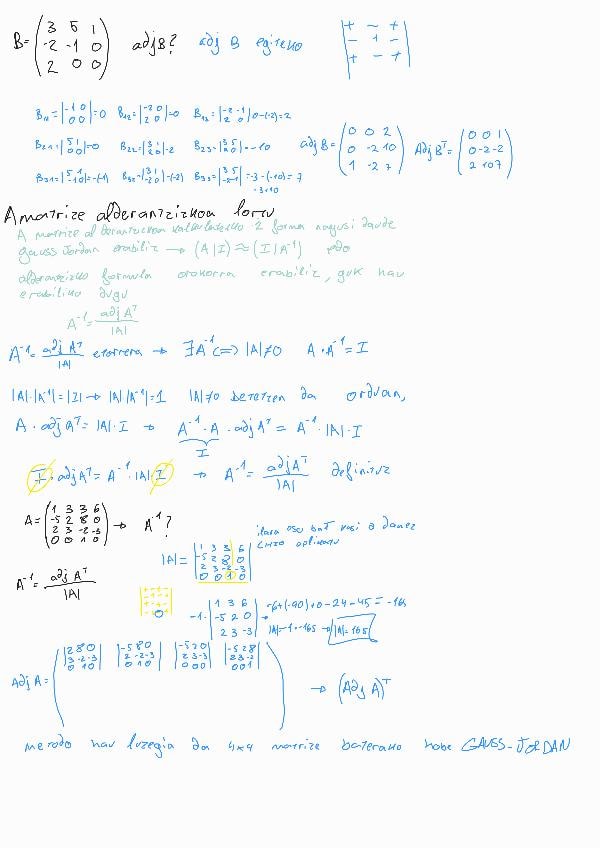 B = (3 5 1 / -2 -1 0 / 2 0 0) adj B? adj B egiteko |+ - + / - + - / + - +|
B₁₁ = |-1 0 / 0 0| = 0 B₁₂ = |-2 0 / 2 0| = 0 B₁₃ = |-2 -1 / 2 0| 0-(-2) = 2
B₂₁ = |5 1 / 0 0| = 0 B₂₂ = |3 1 / 2 0| -2 B₂₃ = |3 5 / 2 0| = -10 adj B = (0 0 2 / 0 -2 10 / 1 -2 7) Adj Bᵀ = (0 0 1 / 0 -2 -2 / 2 10 7)
B₃₁ = |5 1 / -1 0| = -(-1) B₃₂ = |3 1 / -2 0| = -(-2) B₃₃ = |3 5 / -2 -1| = -3-(-10) = 7
-3+10
A matrize alderantzizkoa lortu
A matrize alderantzizkoa kalkulatzeko 2 forma nagusi daude
gauss Jordan erabiliz → (A|I) ≈ (I|A⁻¹) edo
alderantzizko formula orokorra erabiliz, guk hau
erabiliko dugu
A⁻¹ = adj Aᵀ / |A|
A⁻¹ = adj Aᵀ / |A| etorrera → ∃A⁻¹ <=> |A| ≠ 0 A · A⁻¹ = I
|A|·|A⁻¹| = |I| → |A| |A⁻¹| = 1 |A| ≠ 0 betetzen da orduan,
A · adj Aᵀ = |A| · I → A⁻¹ · A · adj Aᵀ = A⁻¹ · |A| · I
I
I · adj Aᵀ = A⁻¹ · |A| I → A⁻¹ = adj Aᵀ / |A| definituz
A = (1 3 3 6 / -5 2 8 0 / 2 3 -2 -3 / 0 0 1 0) → A⁻¹?
ilara oso bat kasi 0 danez
|A| = |1 3 3 6 / -5 2 8 0 / 2 3 -2 -3 / 0 0 1 0|
A⁻¹ = adj Aᵀ / |A|
-1 · |1 3 6 / -5 2 0 / 2 3 -3| → -6+(-90)+0-24-45 = -165
|A| = -1 · -165 → |A| = 165
Adj A = (|2 8 0 / 3 -2 -3 / 0 1 0| |-5 8 0 / 2 -2 -3 / 0 1 0| |-5 2 0 / 2 3 -3 / 0 0 0| |-5 2 8 / 2 3 -2 / 0 0 1|) → (Adj A)ᵀ
metodo hau luzegia da 4x4 matrize baterako hobe GAUSS-JORDAN